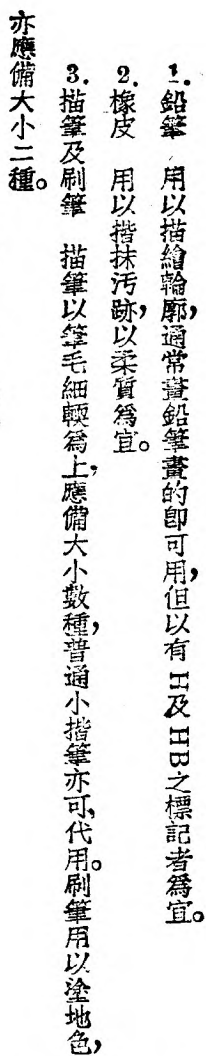 1. 鉛筆　用以描繪輪廓，通常畫鉛筆畫的卽可用，但以有 H及 HB之標記者爲宜。
2. 橡皮　用以揩抹汚跡，以柔質爲宜。
3. 描筆及刷筆　描筆以筆毛細輭爲上，應備大小數種，普通小揩筆亦可代用。刷筆用以塗地色，
亦應備大小二種。